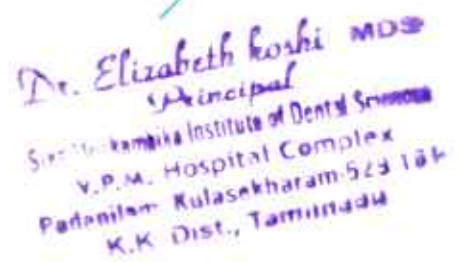 Dr. Elizabeth Koshi MDS
Principal
Institute of Dental Sciences
V.P.M. Hospital Complex
Padanilam Kulasekharam-629
K.K Dist., Tamilnadu